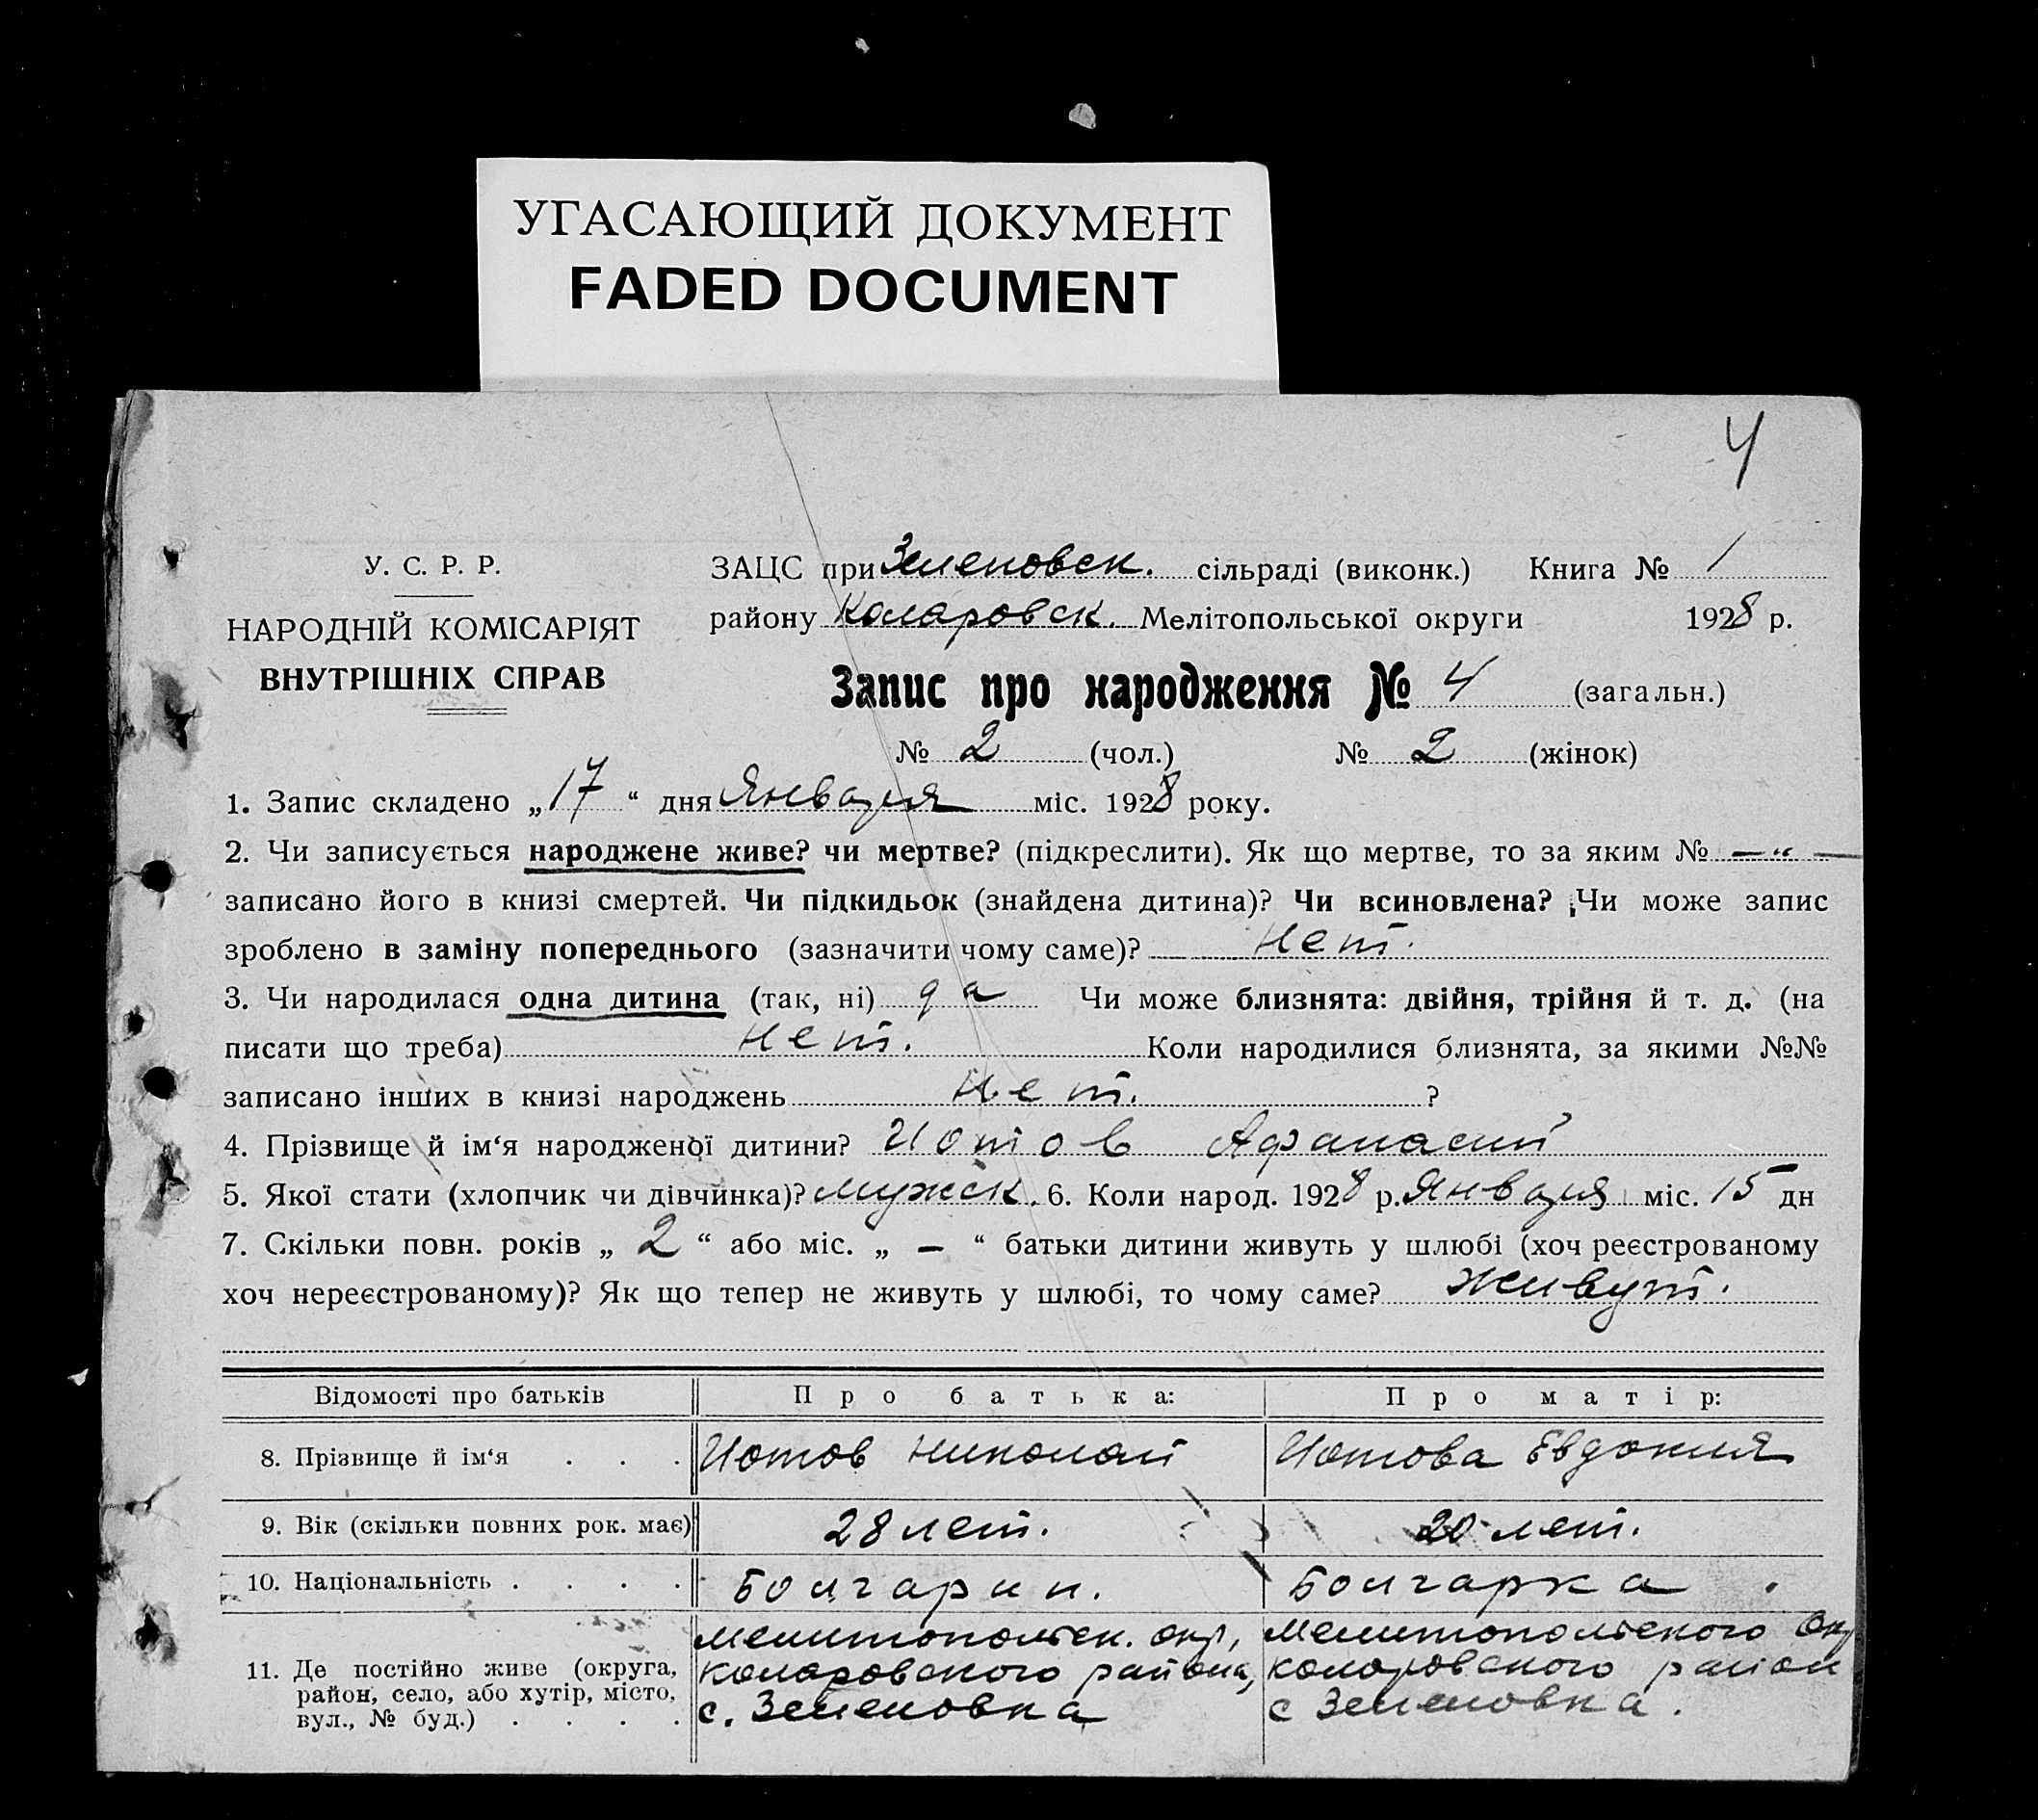 УГАСАЮЩИЙ ДОКУМЕНТ
FADED DOCUMENT
4
У. С. Р. Р.
НАРОДНІЙ КОМІСАРІЯТ
ВНУТРІШНІХ СПРАВ
ЗАЦС при Зеленовск. сільраді (виконк.) Книга № 1
району Коларовск. Мелітопольської округи 1928 р.
Запис про народження № 4 (загальн.)
№ 2 (чол.) № 2 (жінок)
1. Запис складено „17“ дня Января міс. 1928 року.
2. Чи записується народжене живе? чи мертве? (підкреслити). Як що мертве, то за яким № —„—
записано його в книзі смертей. Чи підкидьок (знайдена дитина)? Чи всиновлена? Чи може запис
зроблено в заміну попереднього (зазначити чому саме)? Нет.
3. Чи народилася одна дитина (так, ні) да Чи може близнята: двійня, трійня й т. д. (на
писати що треба) Нет. Коли народилися близнята, за якими №№
записано інших в книзі народжень Нет. ?
4. Прізвище й ім‘я народженої дитини? Иотов Афанасий
5. Якої стати (хлопчик чи дівчинка)? мужск. 6. Коли народ. 1928 р. Января міс. 15 дн
7. Скільки повн. років „ 2 “ або міс. „ — “ батьки дитини живуть у шлюбі (хоч реєстрованому
хоч нереєстрованому)? Як що тепер не живуть у шлюбі, то чому саме? Живут.
Відомості про батьків Про батька: Про матір:
8. Прізвище й ім‘я . . . Иотов Николай Иотова Евдокия
9. Вік (скільки повних рок. має) 28 лет. 20 лет.
10. Національність . . . . Болгарин. Болгарка.
11. Де постійно живе (округа,
район, село, або хутір, місто,
вул., № буд.) . . . .
Мелитопольск. окр,
Коларовского района,
с. Зеленовка
Мелитопольского Окр
Коларовского район
с Зеленовка.